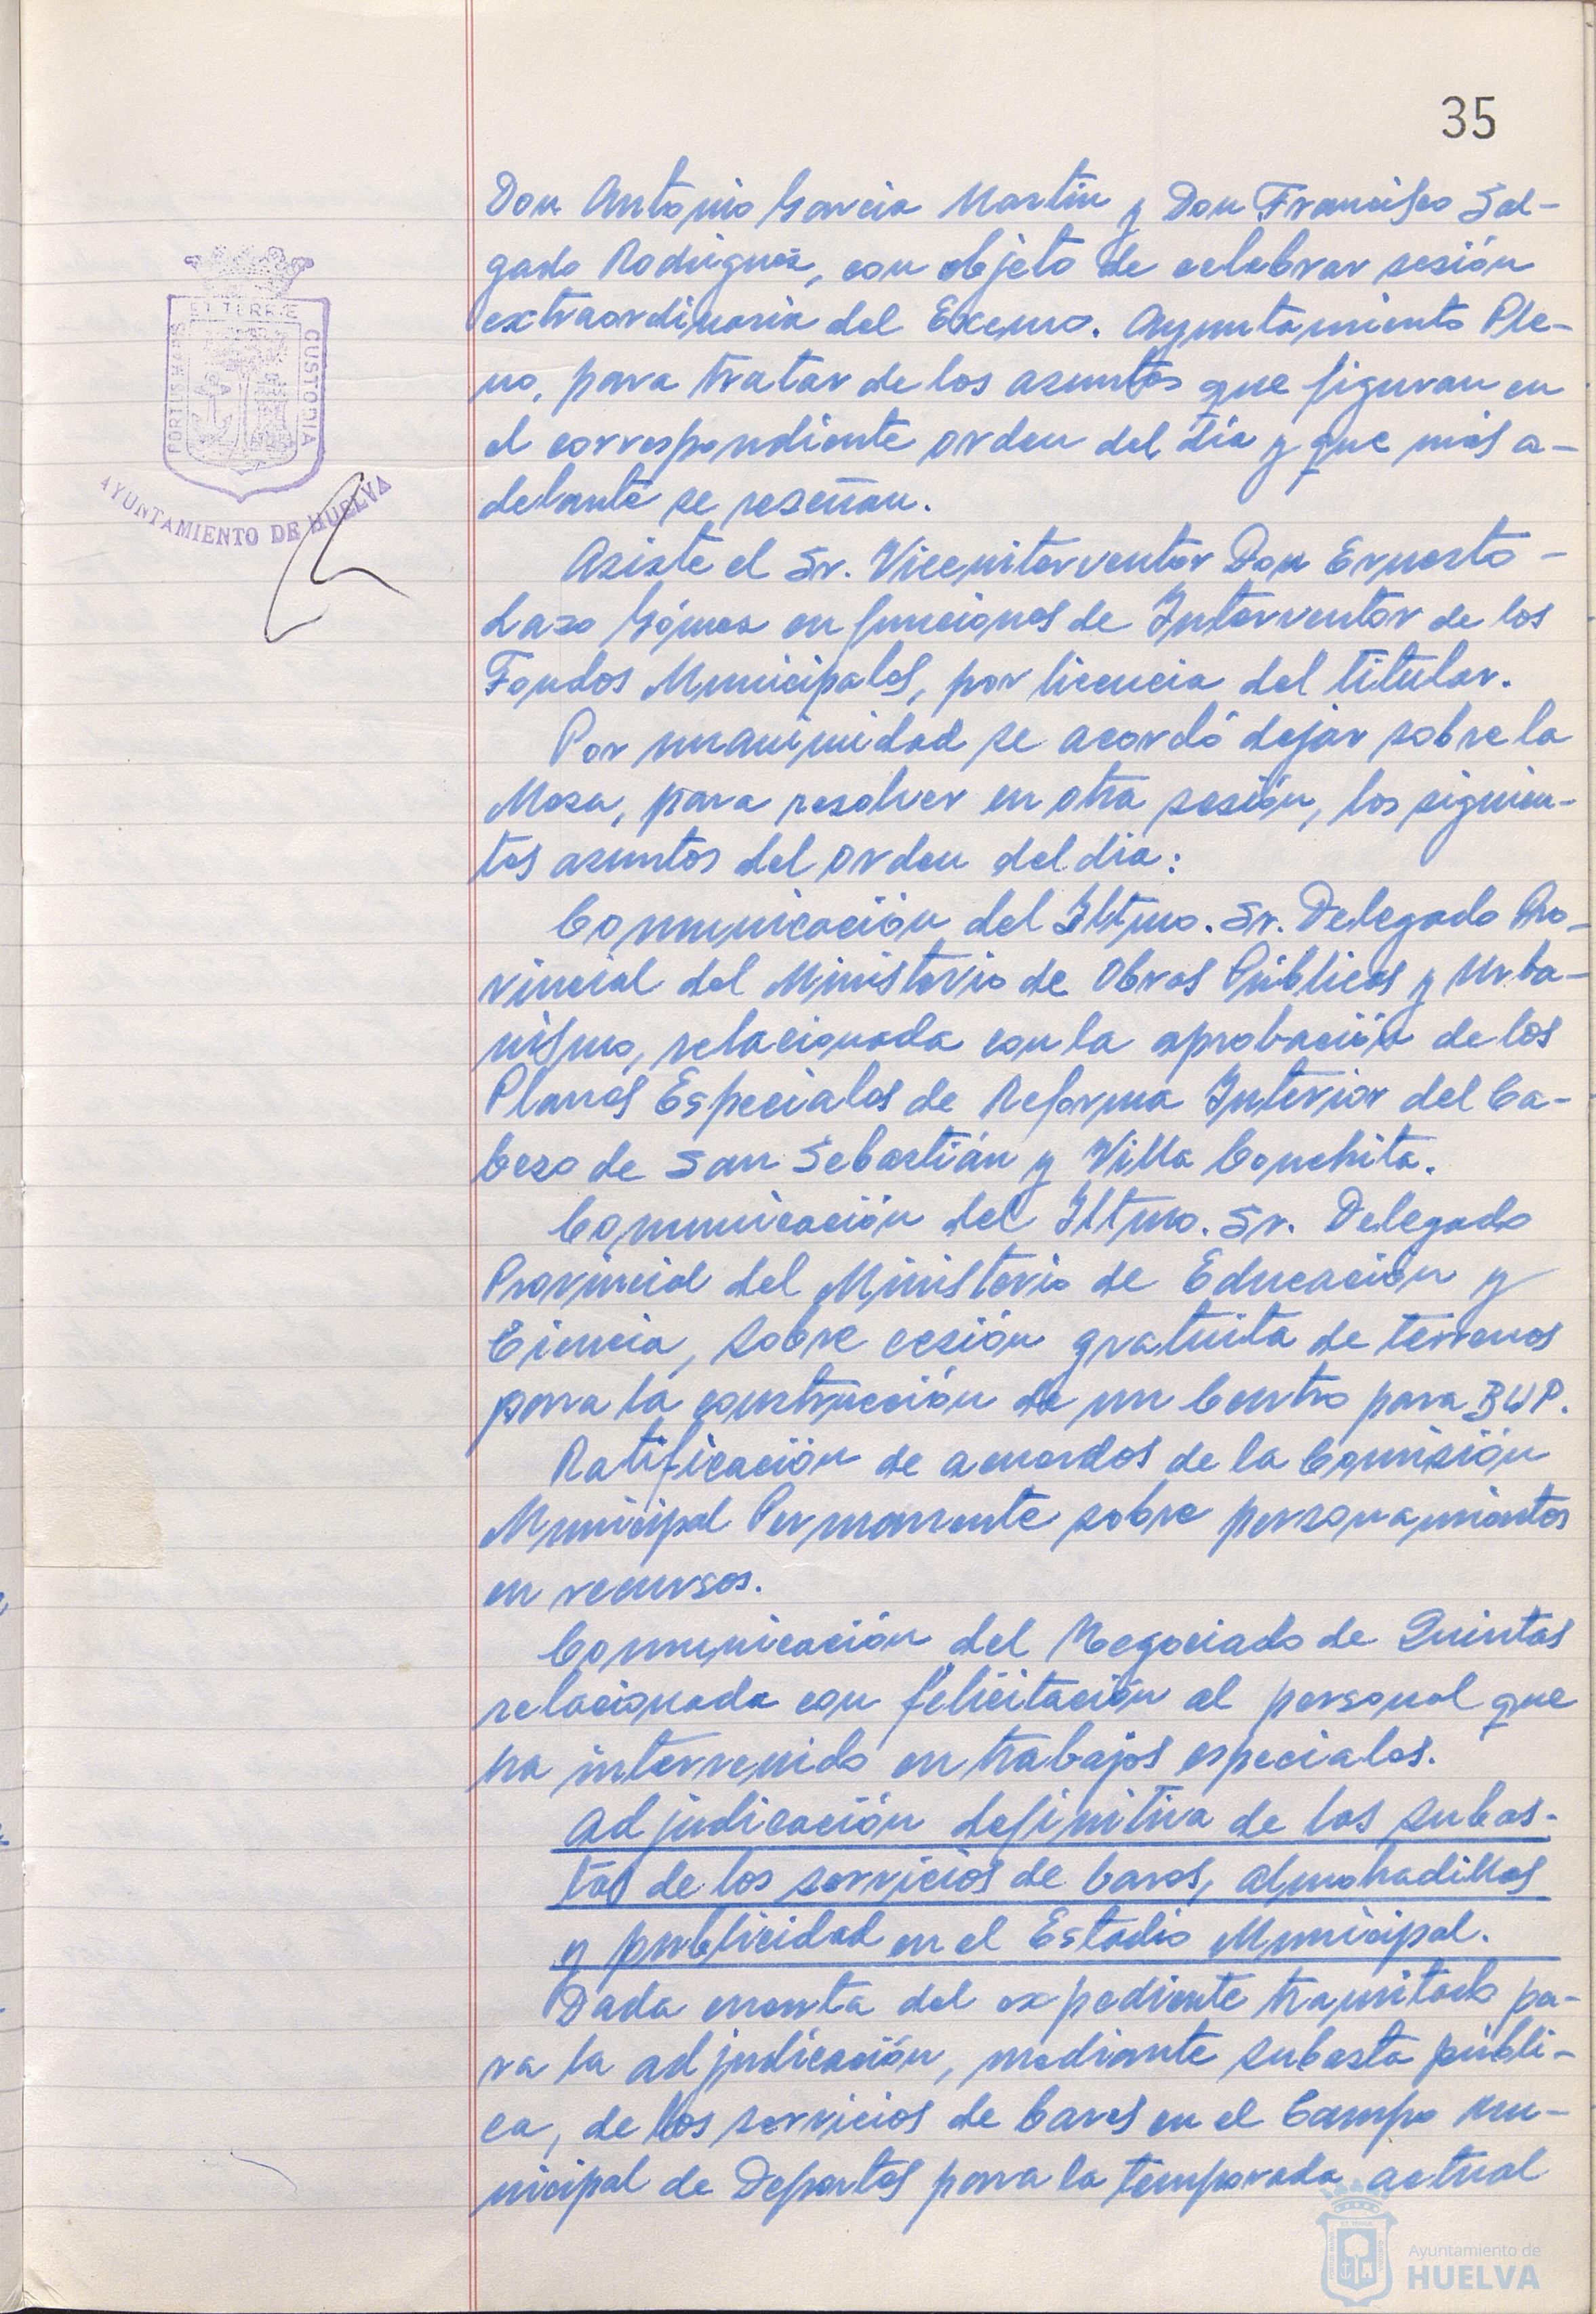 35
Don Antonio García Martín y Don Francisco Sal-
gado Rodríguez, con objeto de celebrar sesión
extraordinaria del Excmo. Ayuntamiento Ple-
no, para tratar de los asuntos que figuran en
el correspondiente orden del día y que más a-
delante se reseñan.
Asiste el Sr. Viceinterventor Don Ernesto -
Lazo Gómez en funciones de Interventor de los
Fondos Municipales, por licencia del titular.
Por unanimidad se acordó dejar sobre la
Mesa, para resolver en otra sesión, los siguien-
tes asuntos del orden del día:
Comunicación del Iltmo. Sr. Delegado Pro-
vincial del Ministerio de Obras Públicas y Urba-
nismo, relacionada con la aprobación de los
Planes Especiales de Reforma Interior del Ca-
bezo de San Sebastián y Villa Conchita.
Comunicación del Iltmo. Sr. Delegado
Provincial del Ministerio de Educación y
Ciencia, sobre cesión gratuita de terrenos
para la construcción de un Centro para BUP.
Ratificación de acuerdos de la Comisión
Municipal Permanente sobre personamientos
en recursos.
Comunicación del Negociado de Quintas
relacionada con felicitación al personal que
ha intervenido en trabajos especiales.
Adjudicación definitiva de las subas-
tas de los servicios de bares, almohadillas
y publicidad en el Estadio Municipal.
Dada cuenta del expediente tramitado pa-
ra la adjudicación, mediante subasta públi-
ca, de los servicios de bares en el Campo Mu-
nicipal de Deportes para la temporada actual
PORTUS MARIS
ET TERRE
CUSTODIA
AYUNTAMIENTO DE HUELVA
Ayuntamiento de
HUELVA